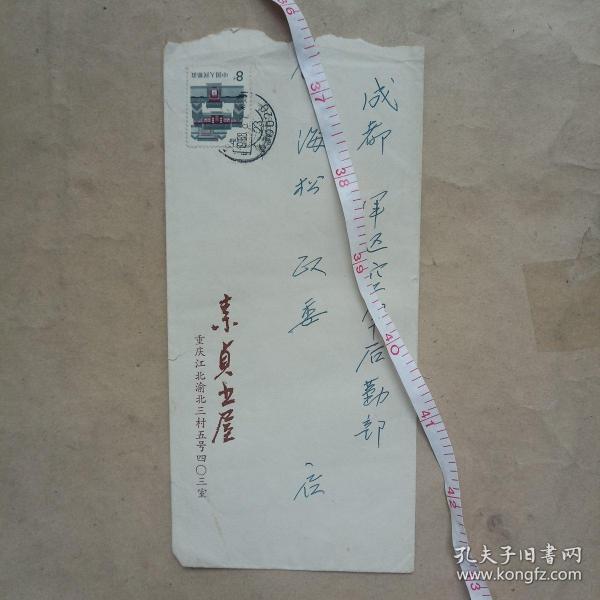 成都 军区空军后勤部
海松 政委
素贞书屋
重庆江北渝北三村五号四〇三室
中国人民邮政
8
36
37
38
39
40
41
42
孔夫子旧书网
www.kongfz.com